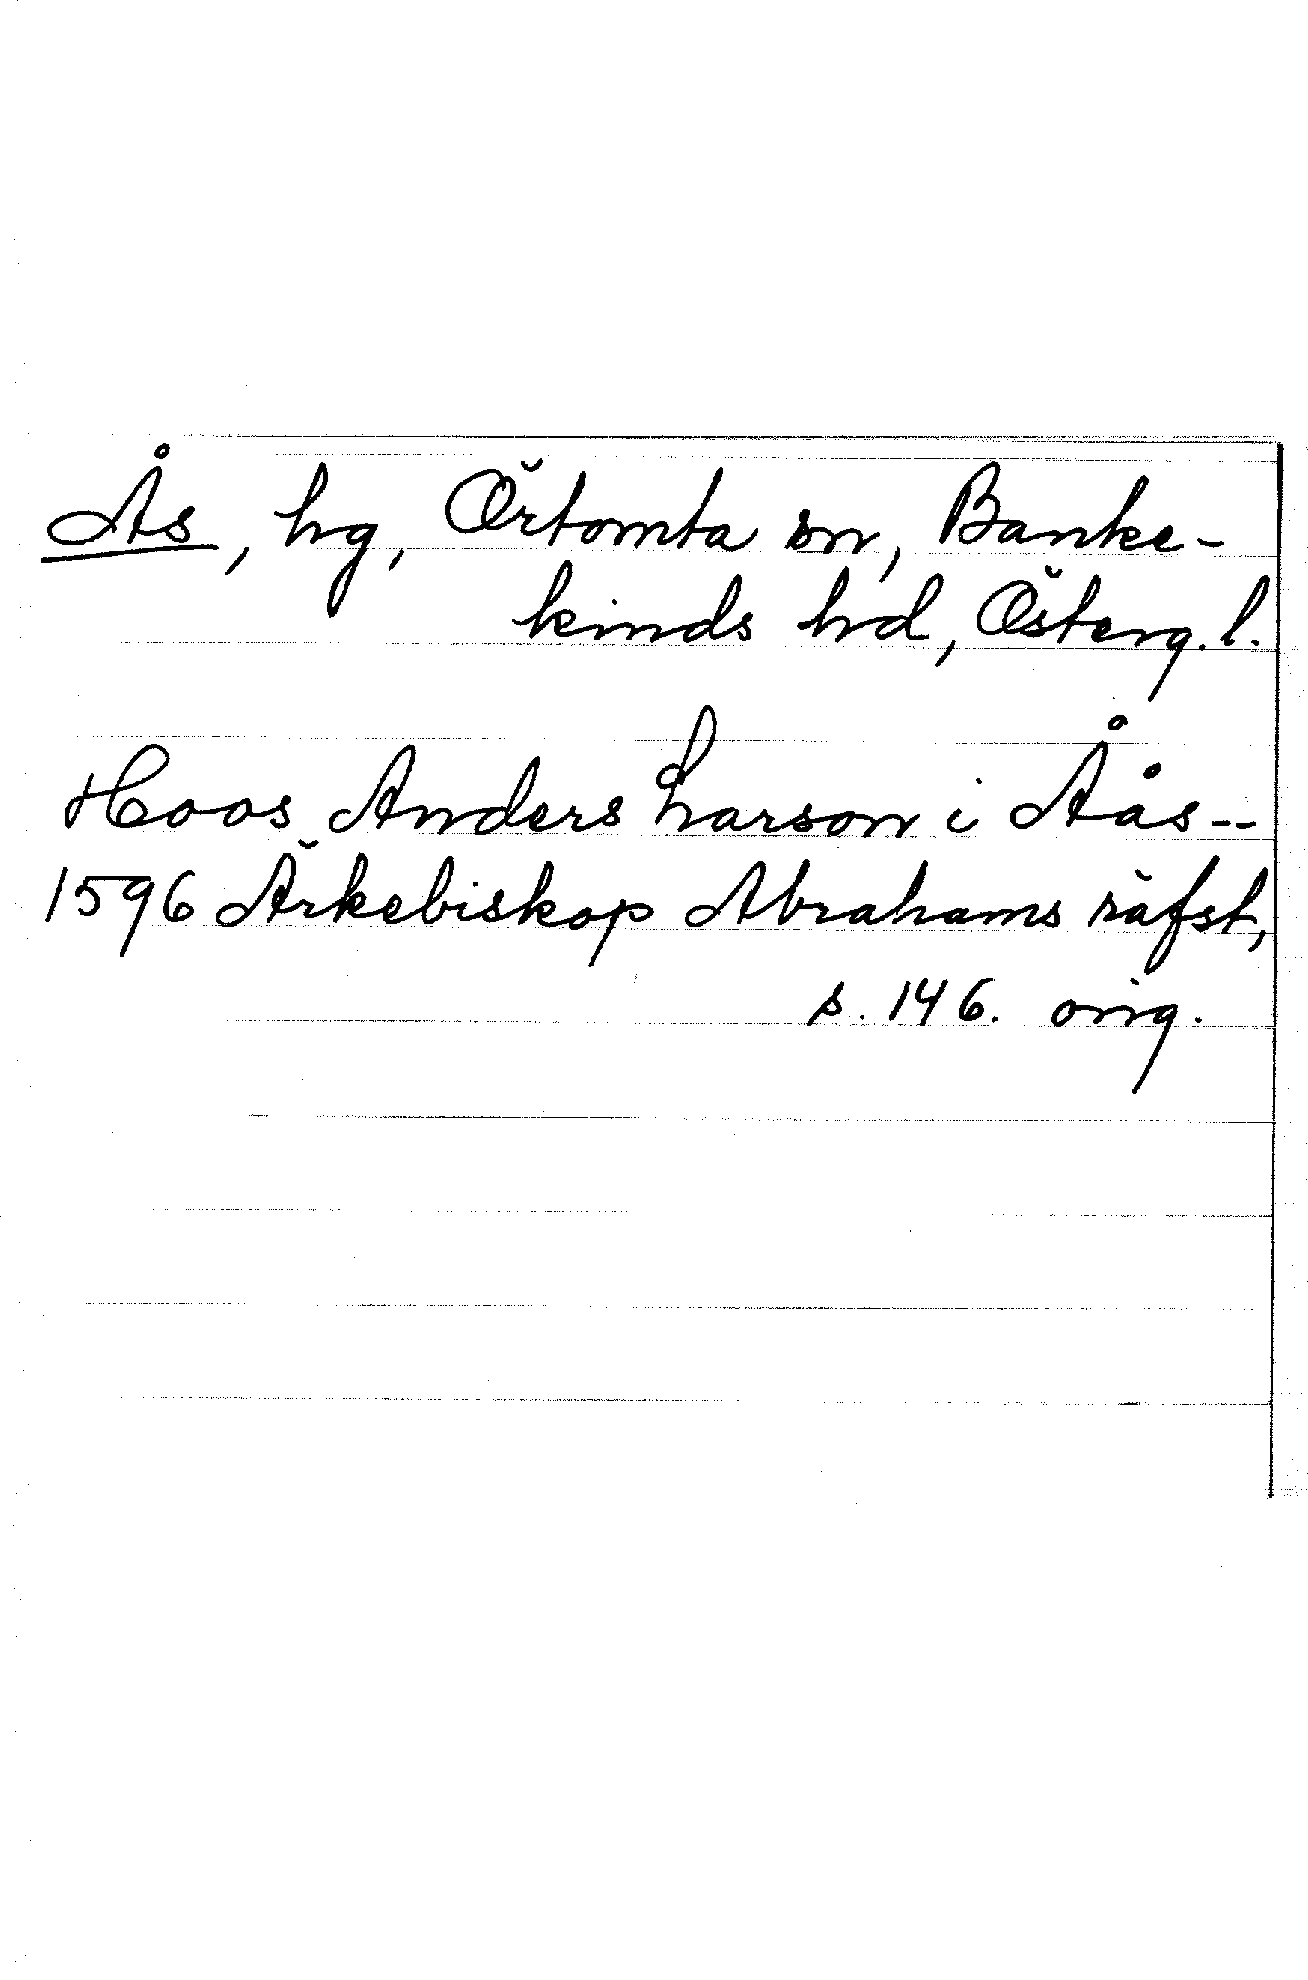 Ås, hg, Örtomta sn, Banke-
kinds hd, Österg. l.
Hoos Anders Larson i Åås--
1596 Ärkebiskop Abrahams räfst,
s. 146. orig.